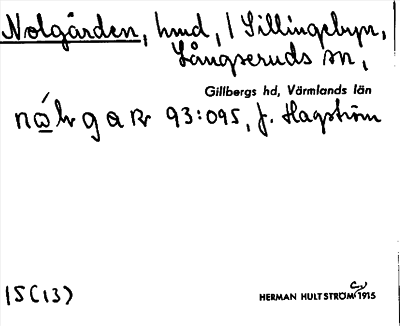 Nolgården, hmd, / Sillingebyn,
Långseruds sn,
Gillbergs hd, Värmlands län
93:095, J. Hagström
15(13)
HERMAN HULTSTRÖM 1915